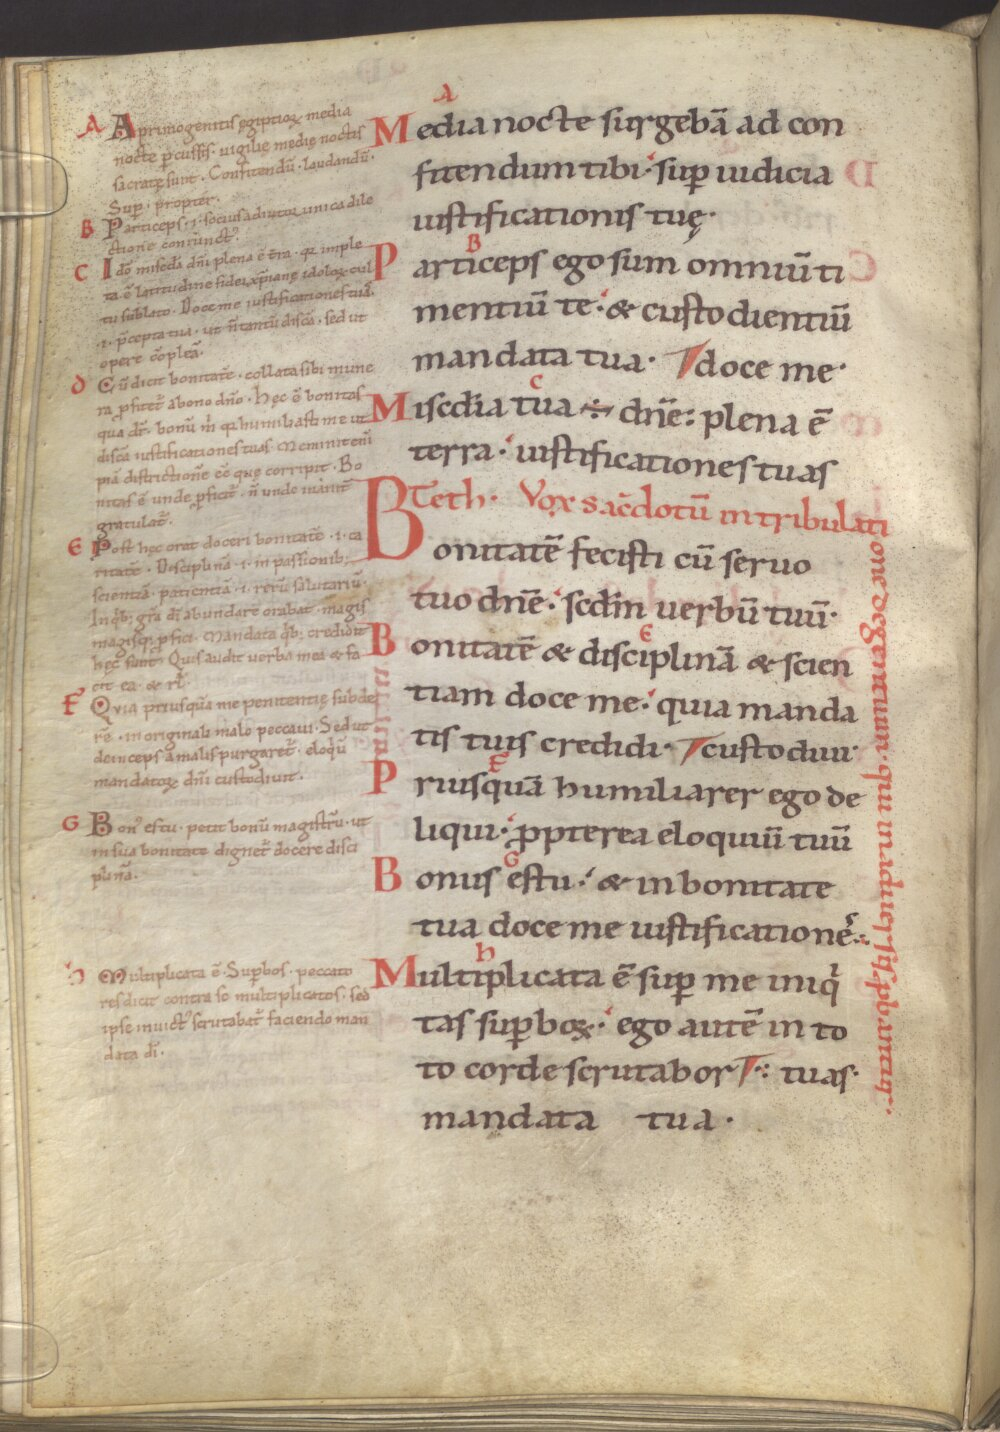 A
A primogenitis egiptioꝝ media
nocte ꝑcussis. uigilię medię noctis
sacratę sunt. Confitendū. laudandū.
Suꝑ. propter.
B Particeps .i. socius adiutor unica dile
ctione coniunctꝰ.
C Iđo miserđa dn̄i plena ē tr̄a. qr imple
ta ē latitudine fidei xp̄ianę idoloꝝ cul
tu sublato. Doce me iustificationes tuā.
.i. p̄cepta tua. ut n̄ tantū discā. sed ut
opere cōpleā.
d Cū dicit bonitatē. collata sibi mune
ra ꝓfitet̄ a bono dn̄o. hęc ē bonitas
qua dr̄. bonū m̄ qr humiliasti me ut
discā iustificationes tuas. Meminit enī
piā districtionē eē quę corripit. Bo
nitas ē unde ꝓficit̄. n̄ unde inanit̄
gratulat̄.
E Post hęc orat doceri bonitatē .i. ca
ritatē. Disciplinā .i. in passionib;
scientiā. patientiā .i. rerū salutariū.
In qb; gr̄a dī abundare orabat. magis
magisq; ꝓfici. Mandata qb; credidit
hęc sunt. Qui audit uerba mea & fa
cit ea. & rł.
F Quia priusquā me penitentię subde
rē. in originali malo peccaui. Sed ut
deinceps a malis purgaret̄. eloqū
mandatoꝝ dn̄i custodiuit.
G Bonꝰ es tu. petit bonū magistrū. ut
in sua bonitate dignet̄ docere disci
plinā.
h Multiplicata ē. Suꝑbos. peccato
res dicit contra se multiplicatos. sed
ipse inuictꝰ scrutabat̄ faciendo man
data dī.
A
Media nocte surgebā ad con
fitendum tibi. suꝑ iudicia
iustificationis tuę.
B
Particeps ego sum omniū ti
mentiū te. & custodientiū
mandata tua. doce me.
C
Misc̄dia tua ÷ dn̄e: plena ē
terra. iustificationes tuas
Teth. Vox sacdotū in tribulati
one degentium. qui in aduersis ꝓbantur.
Bonitatē fecisti cū seruo
tuo dn̄e. scđm uerbū tuū.
E
Bonitatē & disciplinā & scien
tiam doce me. quia manda
tis tuis credidi. custodiui.
F
Priusquā humiliarer ego de
liqui. ꝓpterea eloquiū tuū
G
Bonus es tu. & in bonitate
tua doce me iustificationeˢ:
h
Multiplicata ē super me iniqi
tas suꝑboꝝ. ego autē in to
to corde scrutabor : tuas.
mandata tua.